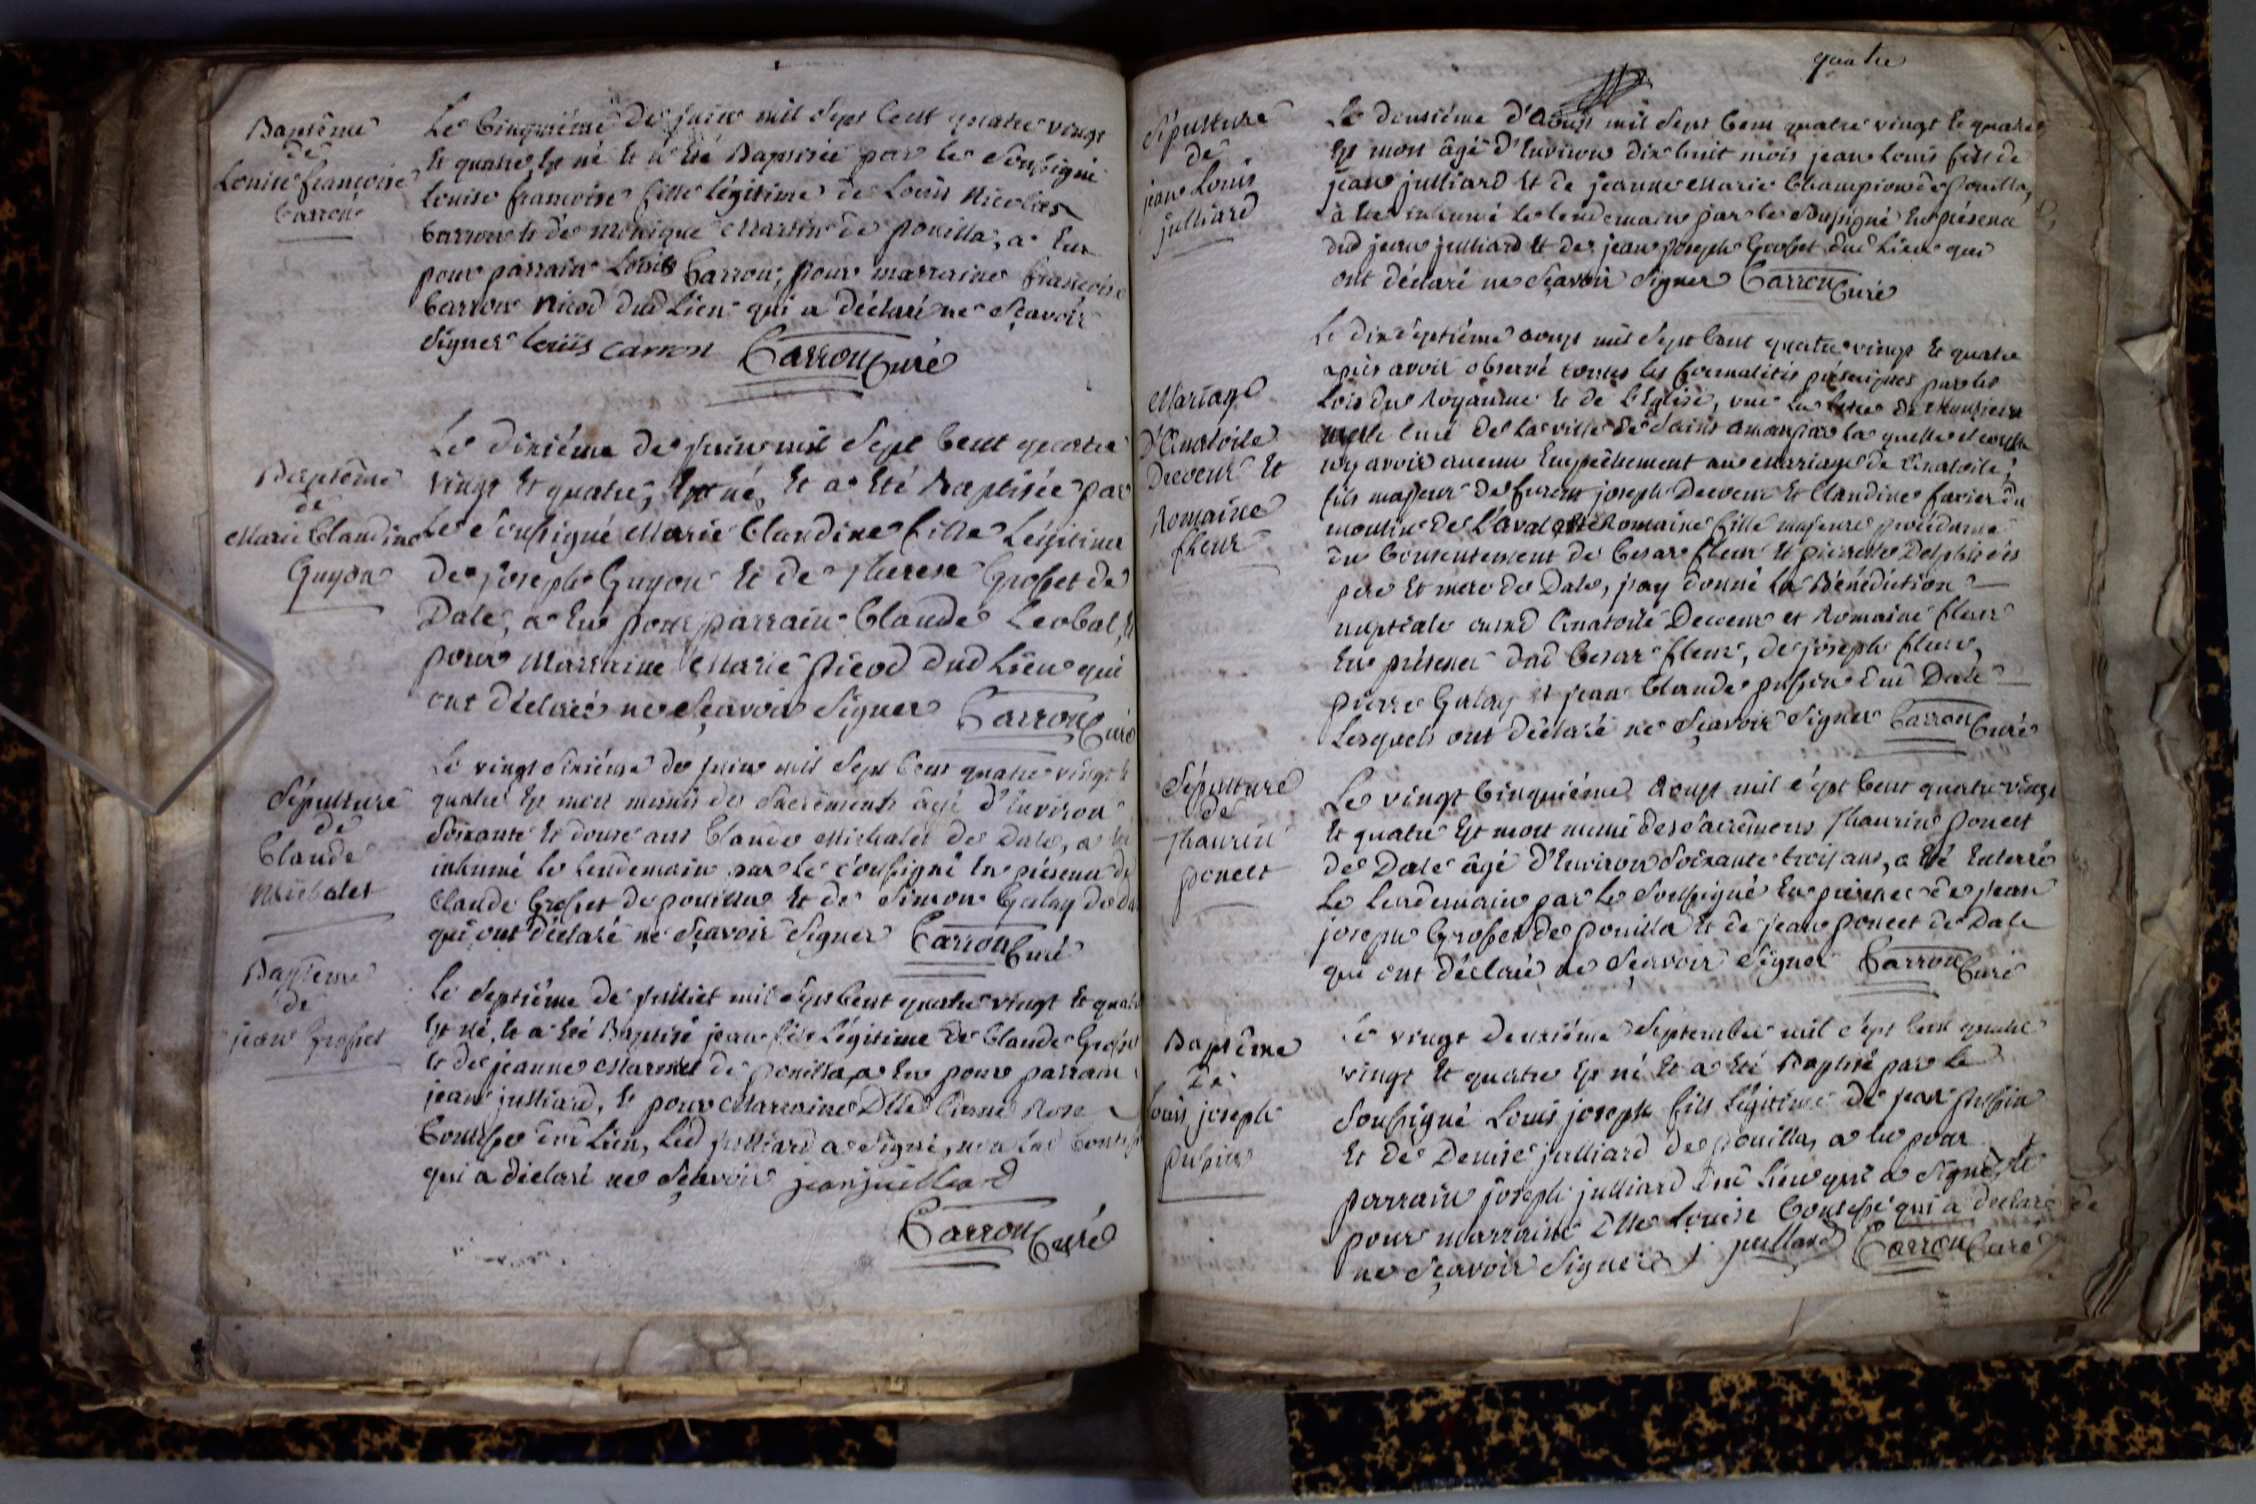 Baptême
de
Louise françoise
Carron
Le Cinquième de juin mil Sept Cent quatre vingt
Et quatre Est né Et a Eté Baptisée par le Soussigné
Louise françoise fille légitime de Louis Nicolas
Carron Et de Monique Martin de pouilla, a Eue
pour parrain Louis Carron, pour marraine françoise
Carron Nicod dud Lieu qui a déclaré ne Sçavoir
Signer Louis Carron Carron Curé
Baptême
de
Marie Claudine
Guyon
Le dixiéme de juin mil Sept Cent quatre
vingt Et quatre, Est né, Et a Eté Baptisée par
Le Soussigné Marie Claudine fille Légitime
de joseph Guyon Et de Therese Grosset de
Dale, a Eu pour parrain Claude
pour Marraine Marie picod dud Lieu qui
ont déclaré ne Sçavoir Signer Carron Curé
Sépulture
de
Claude
Michalet
Le vingt Sixiéme de juin mil Sept Cent quatre vingt
quatre Est mort munis de Sacrements âgé d'Environ
Soixante Et douze ans Claude Michalet de Dale, a
inhumé le Lendemain par Le Soussigné En présence de
Claude Grosset de pouilla Et de Simon Galay de
qui ont déclaré ne Sçavoir Signer Carron Curé
Baptême
de
jean Grosset
Le Septiéme de juillet mil Sept Cent quatre vingt Et quatre
Est né, Et a Eté Baptisé jean fils Légitime de Claude Grosset
Et de jeanne de pouilla, a Eu pour parrain
jean julliard, Et pour Marraine Dlle Rose
dud Lieu, Led julliard a Signé,
qui a déclaré ne Sçavoir jean juilliard
Carron Curé
quatre
Sépulture
de
jean Louis
julliard
Le deuxiéme d'Aoust mil Sept Cent quatre vingt Et quatre
Est mort âgé d'Environ dix huit mois jean Louis fils de
jean julliard Et de jeanne Marie Champion de pouilla,
a Eté inhumé le lendemain par le Soussigné En présence
dud jean julliard Et de jean joseph Grosset dud Lieu qui
ont déclaré ne Sçavoir Signer Carron Curé
Mariage
d'Anatoile
Decoeur Et
Romaine
fleur
Le dix Septiéme aoust mil Sept Cent quatre vingt Et quatre
après avoir observé toutes les formalités prescrites par les
Lois du Royaume Et de L'Eglise, vue La lettre de Monsieur
Curé de La ville de Saint
n'y avoir aucun Empêchement au Mariage de anatoile,
fils majeur de furent joseph Decoeur Et Claudine favier du
moulin de Romaine fille majeure procédant
du Consentement de Cesar fleur Et pierrette Delphin Ses
pere Et mere de Dale, j'ay donné La Bénédiction
nuptiale aud anatoile Decoeur et Romaine fleur
En présence dud Cesar fleur, de joseph fleur,
pierre Galay Et jean Claude dud Dale
Lesquels ont déclaré ne Sçavoir Signer Carron Curé
Sépulture
de
Thaurin
poncet
Le vingt Cinquiéme Aoust mil Sept Cent quatre vingt
Et quatre Est mort muni des Sacrêmens Thaurin poncet
de Dale âgé d'Environ Soixante trois ans, a Eté Enterré
Le Lendemain par Le Soussigné En présence de jean
joseph Grosset de pouilla Et de jean poncet de Dale
qui ont déclaré ne Sçavoir Signer Carron Curé
Baptême
De
Louis joseph
Le vingt deuxiéme Septembre mil Sept Cent quatre
vingt Et quatre Est né Et a Eté Baptisé par Le
Soussigné Louis joseph fils Légitime de jean
Et de Denise julliard de pouilla, a Eu pour
parrain joseph julliard dud Lieu qui a Signé, Et
pour marraine Dlle Louise qui a déclaré
ne Sçavoir Signer j. juilliard Carron Curé